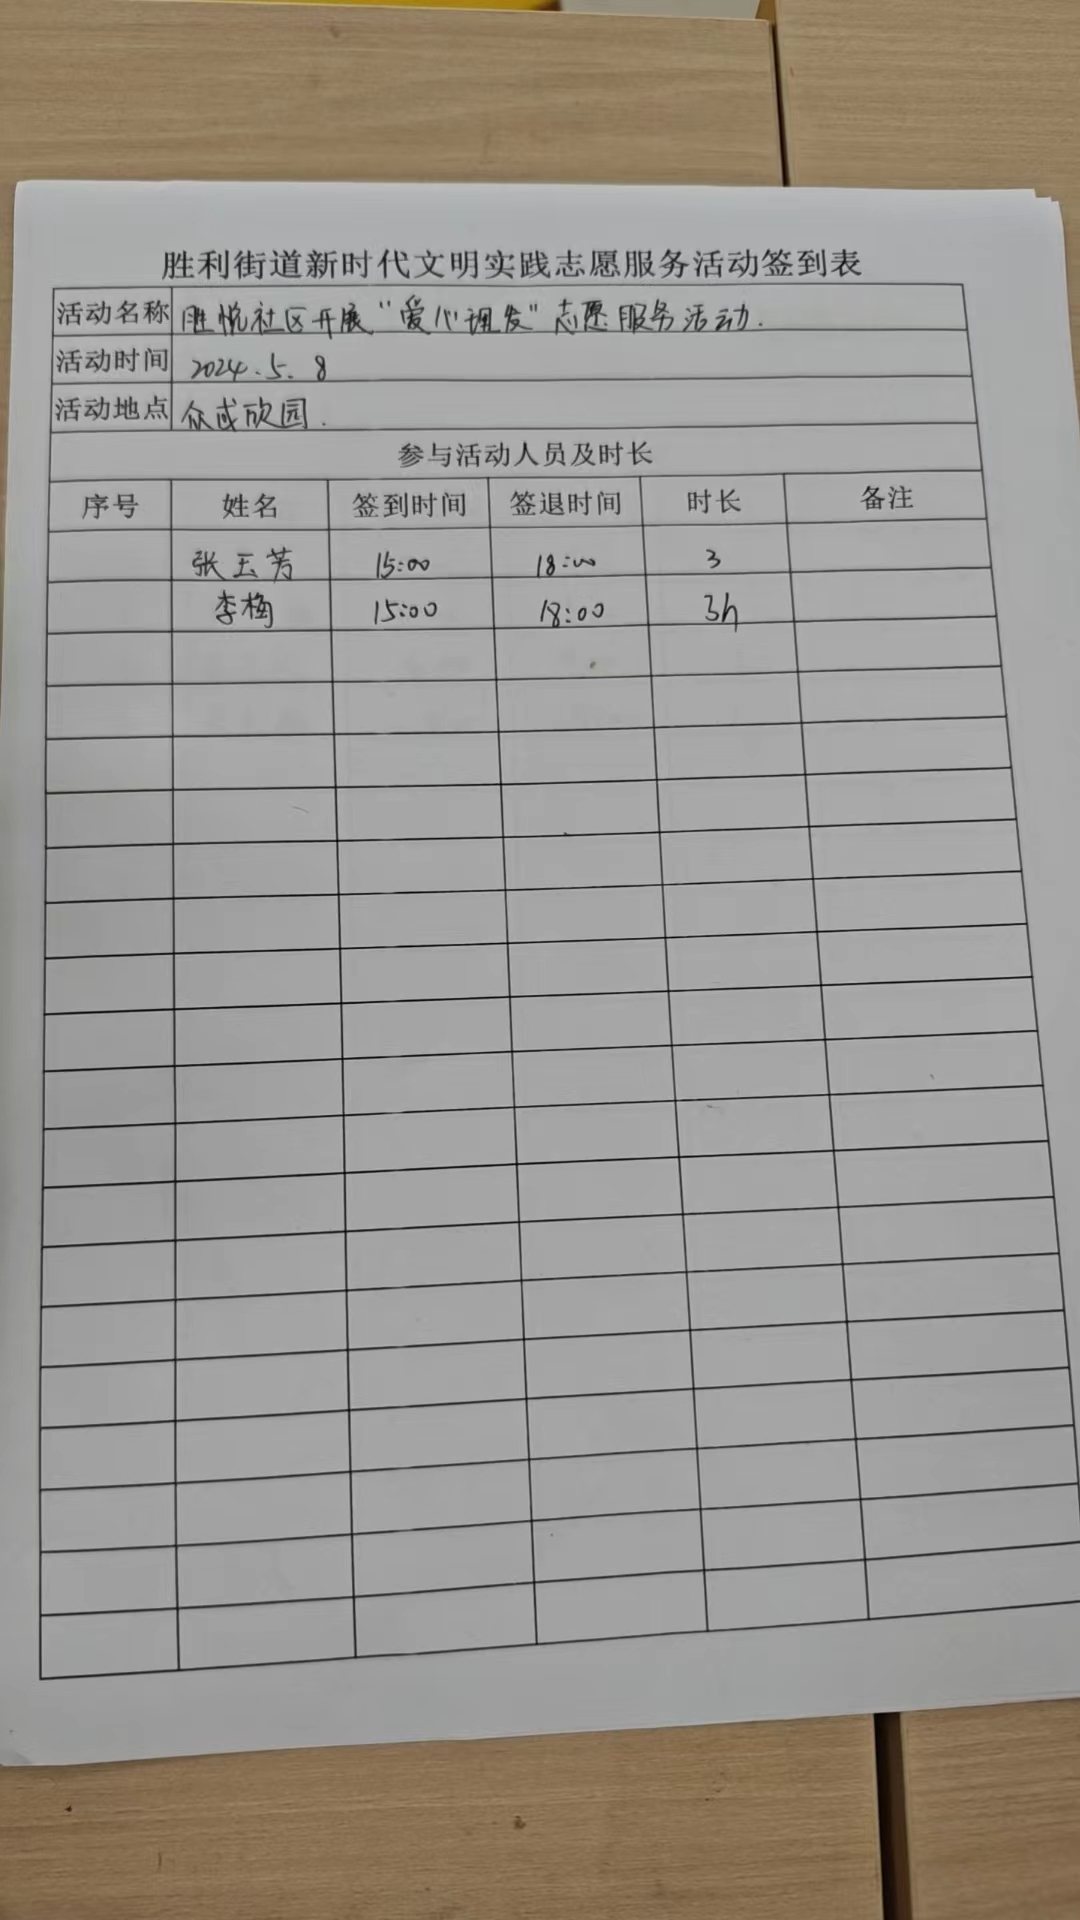 胜利街道新时代文明实践志愿服务活动签到表
活动名称 胜悦社区开展“爱心理发”志愿服务活动.
活动时间 2024.5.8
活动地点 众成欣园.
参与活动人员及时长
序号 姓名 签到时间 签退时间 时长 备注
张玉芳 15:00 18:00 3
李梅 15:00 18:00 3h